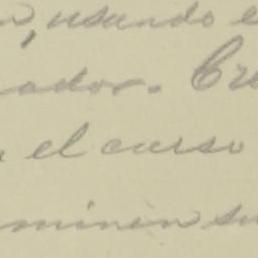 , usando e
ador. Cre
el curso
minen su